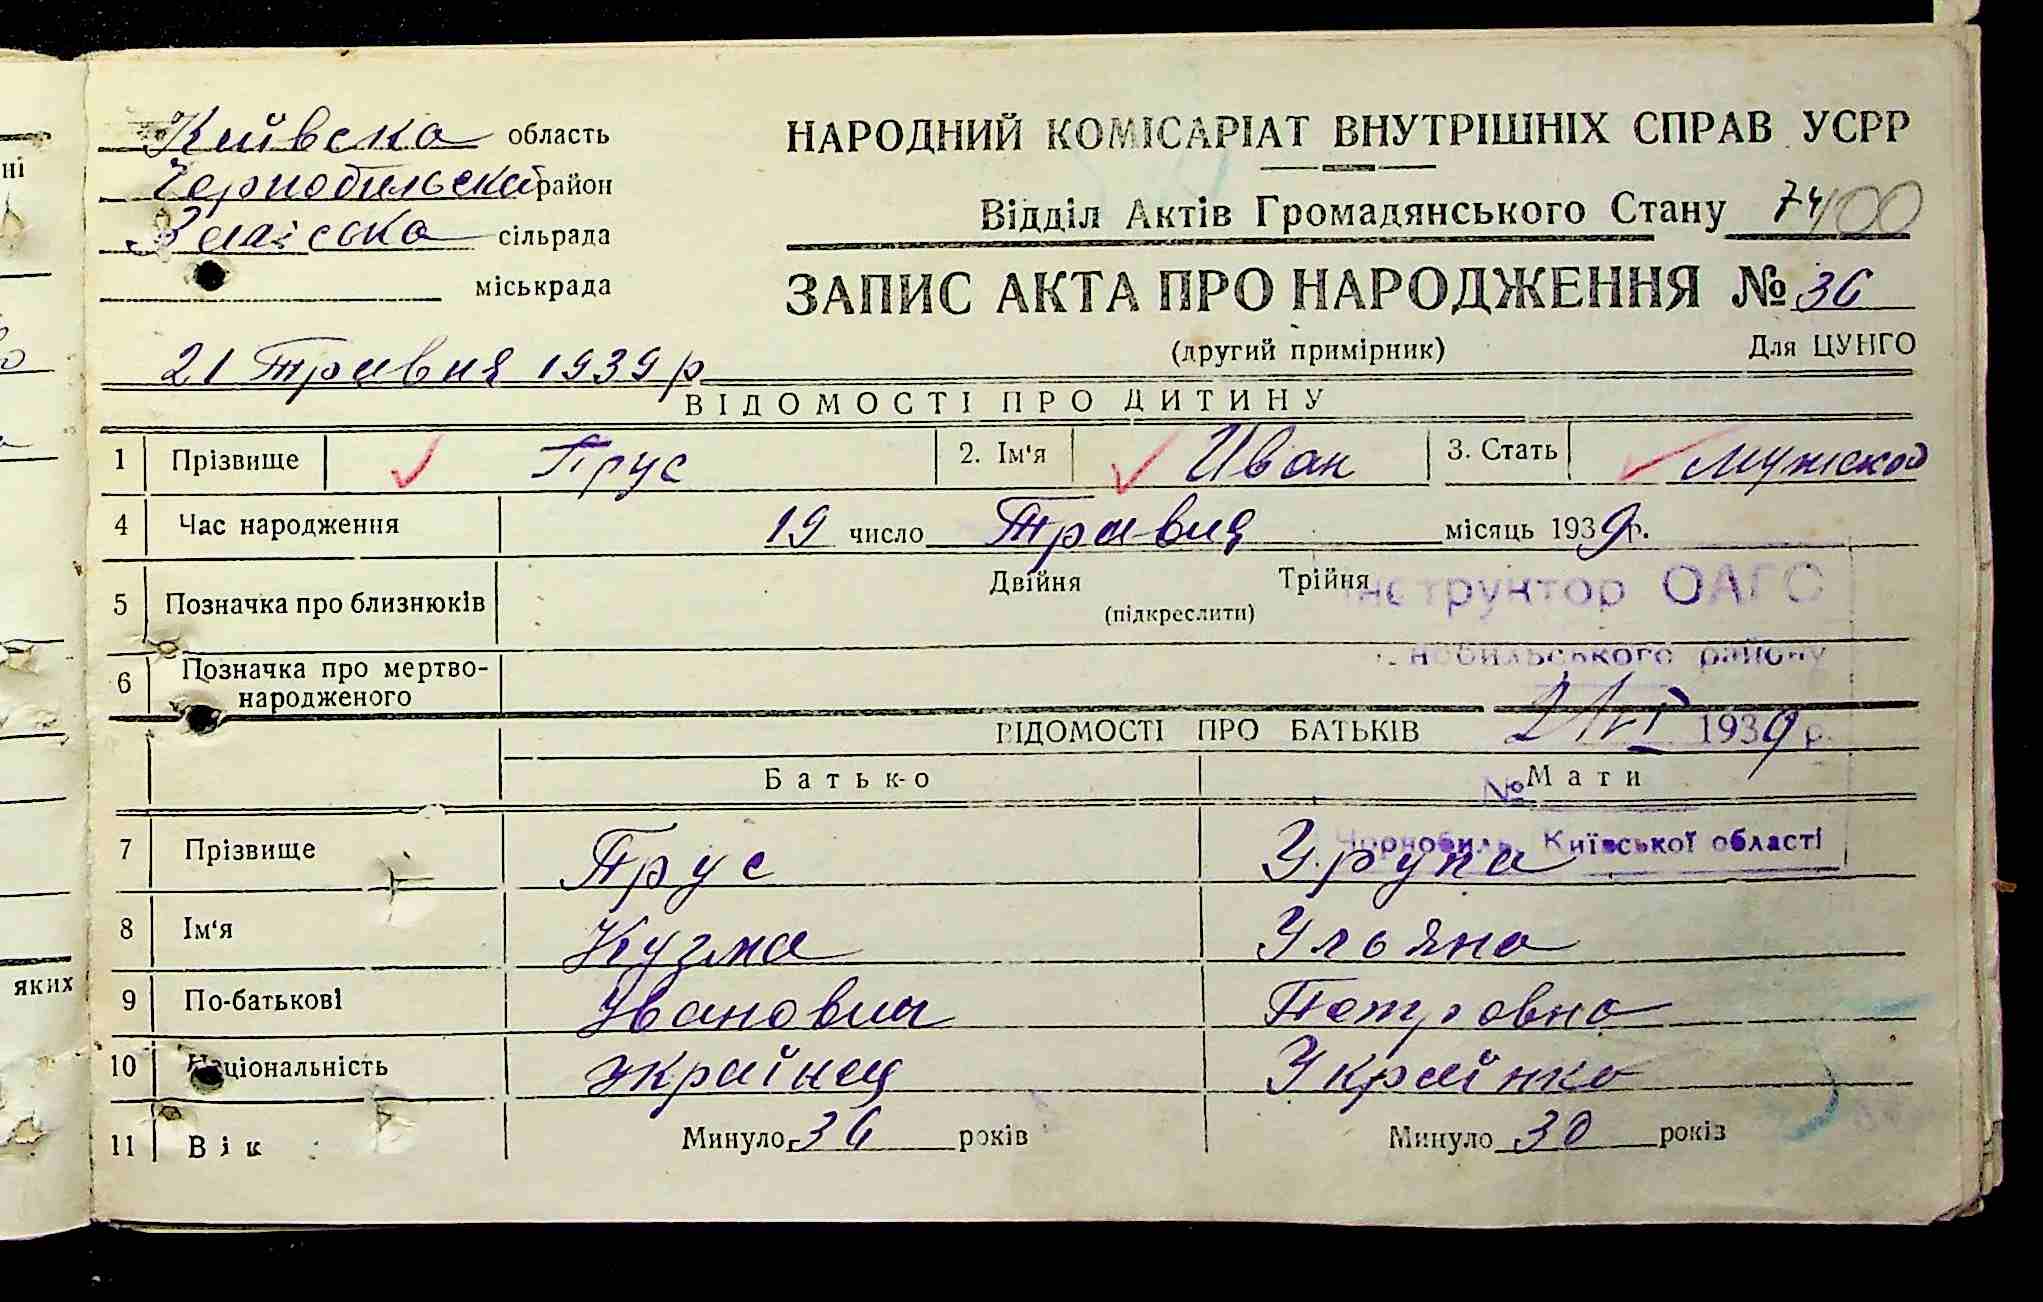 Київска область
Чернобильский район
сільрада
міськрада
НАРОДНИЙ КОМІСАРІАТ ВНУТРІШНІХ СПРАВ УСРР
Відділ Актів Громадянського Стану 74 100
ЗАПИС АКТА ПРО НАРОДЖЕННЯ № 36
(другий примірник) Для ЦУНГО
21 Травня 1939 р
ВІДОМОСТІ ПРО ДИТИНУ
1 Прізвище Прус 2. Ім'я Иван 3. Стать мужской
4 Час народження 19 число Травня місяць 1939 р.
5 Позначка про близнюків Двійня Трійня
(підкреслити)
інструктор ОАГС
6 Позначка про мертво-
народженого
нобильського району
ВІДОМОСТІ ПРО БАТЬКІВ
1939 р.
Батько Мати
№
7 Прізвище Прус
Чорнобиль, Київської області
8 Ім'я Кузма Ульяна
9 По-батькові Іванович Петровна
10 Національність українец Українка
11 Вік Минуло 36 років Минуло 30 років
ні
яких